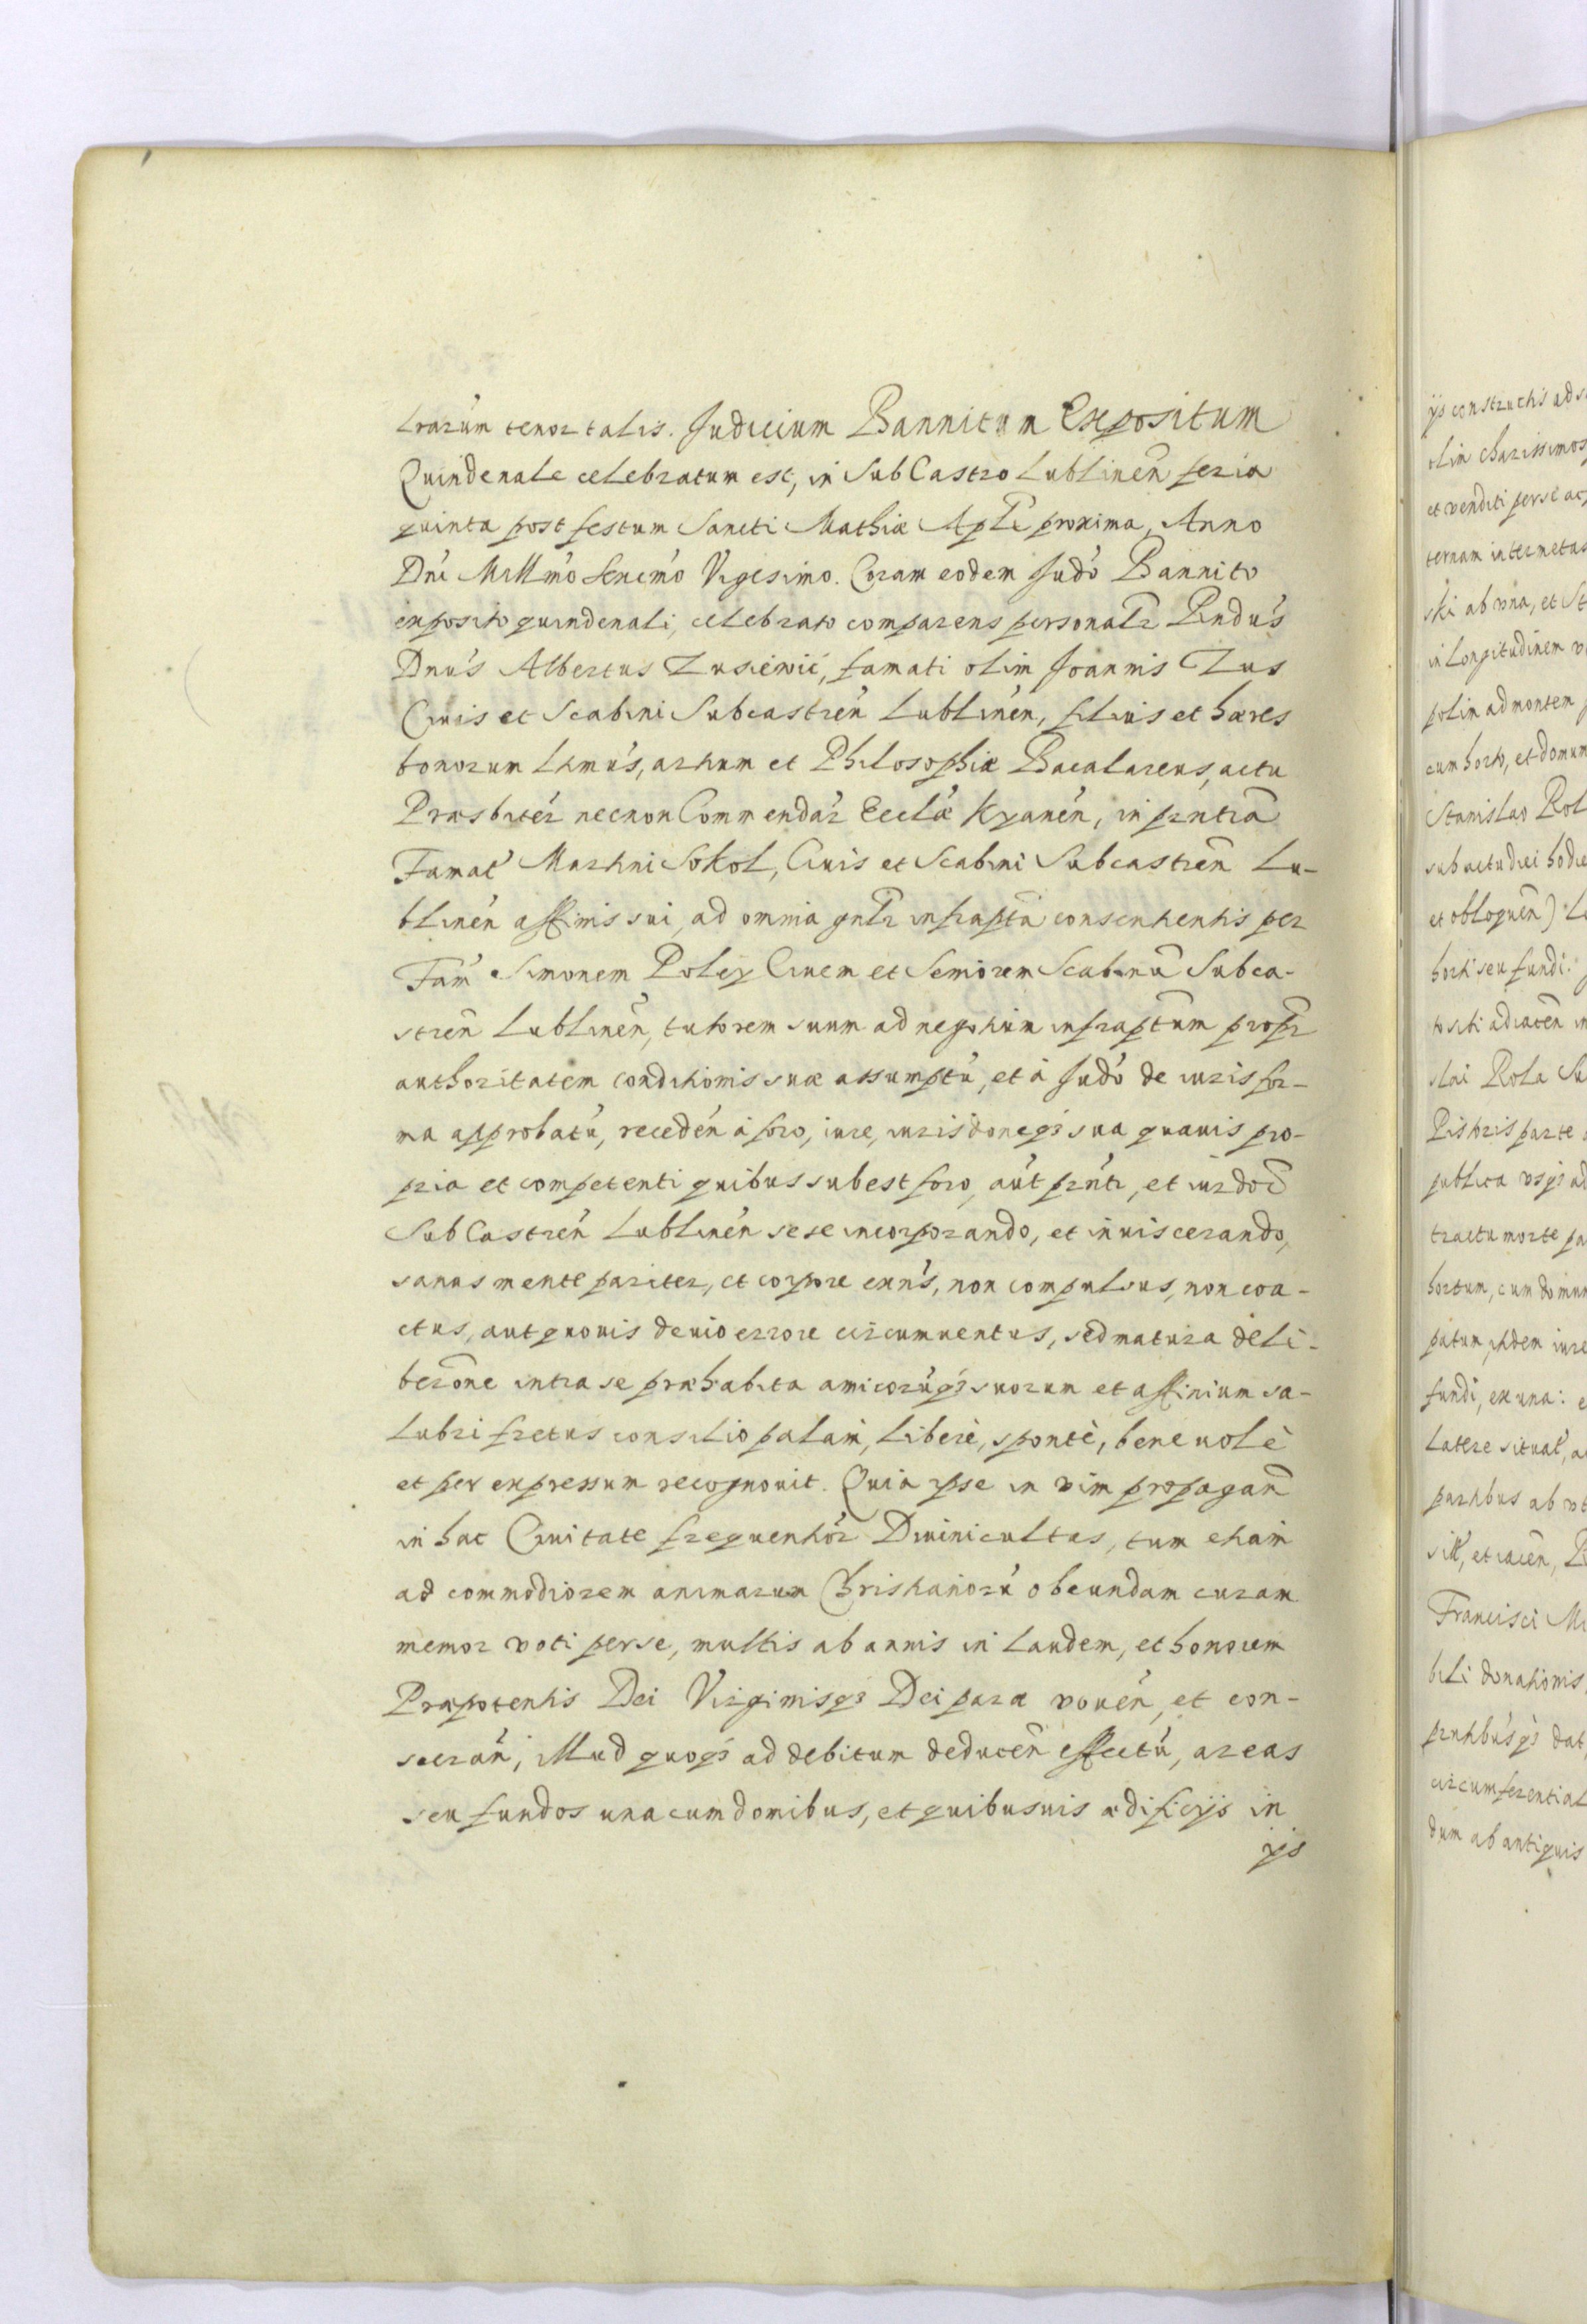 Lrarum tenor talis. Judicium Bannitum Expositum
Quindenale celebratum est, in SubCastro Lublinen̄ feria
quinta post festum Sancti Mathiæ Apli̅ proxima, Anno
Dni Millm̄o Sexcm̄o Vigesimo. Coram eodem Judō Bannito
exposito quindenali, celebrato comparens personalr̄ Rndus
Dnus Albertus Zusiewić, famati olim Joannis Zus
Ciuis et Scabini Subcastren̄ Lublinen̄, filius et hæres
bonorum Ltmus, artium et Philosophiæ Bacalareus, actu
Præsbiter necnon Commendar̄ Eccłæ Kyanen̄, in prntia̅
Famat̄ Martini Sokol, Ciuis et Scabini Subcastren̄ Lu-
blinen̄ affinis sui, ad omnia gnlr̄ infrapta̅ consentientis per
Fam̄ Simonem Poley Ciuem et Seniorem Scabinu̅ Subca-
stren̄ Lublinen̄, tutorem suum ad negotium infraptum propr̄
authoritatem conditionis suæ assumptu̅, et à Judō de iuris for-
ma approbatu̅, receden̄ à foro, iure, iurisdoneq3 sua quauis pro-
pria et competenti quibus subest foro, aut prn̄ti, et iurdoni̅
SubCastren̄ Lublinen̄ sese incorporando, et inuiscerando,
sanus mente pariter, et corpore exn̄s, non compulsus, non coa-
ctus, aut quouis deuio errore circumuentus, sed matura deli-
berōne intra se præhabita amicoru̅q3 suorum et affinium sa-
lubri fretus consilio palàm, liberè, spontè, beneuolè
et per expressum recognouit. Quia ipse in vim propagan̄
in hac Ciuitate frequentior̄ Diuini cultus, tum etiam
ad commodiorem animarum Christianoru̅ obeundam curam
memor voti per se, multis ab annis in laudem, et honorem
Præpotentis Dei Virginisq3 Deiparæ vouen̄, et con-
secran̄, illud quoq3 ad debitum deducen̄ effectu̅, areas
seu fundos una cum domibus, et quibusuis ædificijs in
ijs
ijs constructis ad
olim charissimos
et venditi per se ac
ternam intermetas
ski ab vna, et St
in longitudinem
polin ad montem
cum horto, et domum
Stanislao Rol
sub actu diei hodie
et obloquen̄)
horti seu fundi
to siti adiacen̄ in
slai Rola Su
Pistoris parte
publica vsq3 ad
tractu morte pa
hortum, cum domum
patum, itidem iure
fundi, ex una: e
latere situat̄, a
partibus ab vt
sitt̄, et iacen̄,
Francisci M
bili donationis,
prntibusq3 dat
circumferential
dum ab antiquis